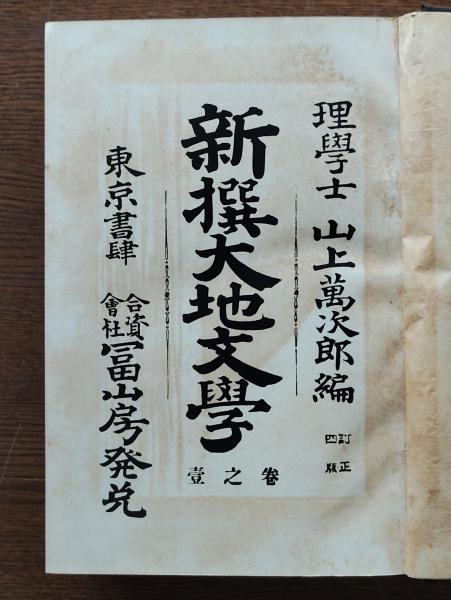 理學士 山上萬次郎編
訂正
四版
新撰大地文學
卷之壹
東京書肆
合資
會社
冨山房発兌